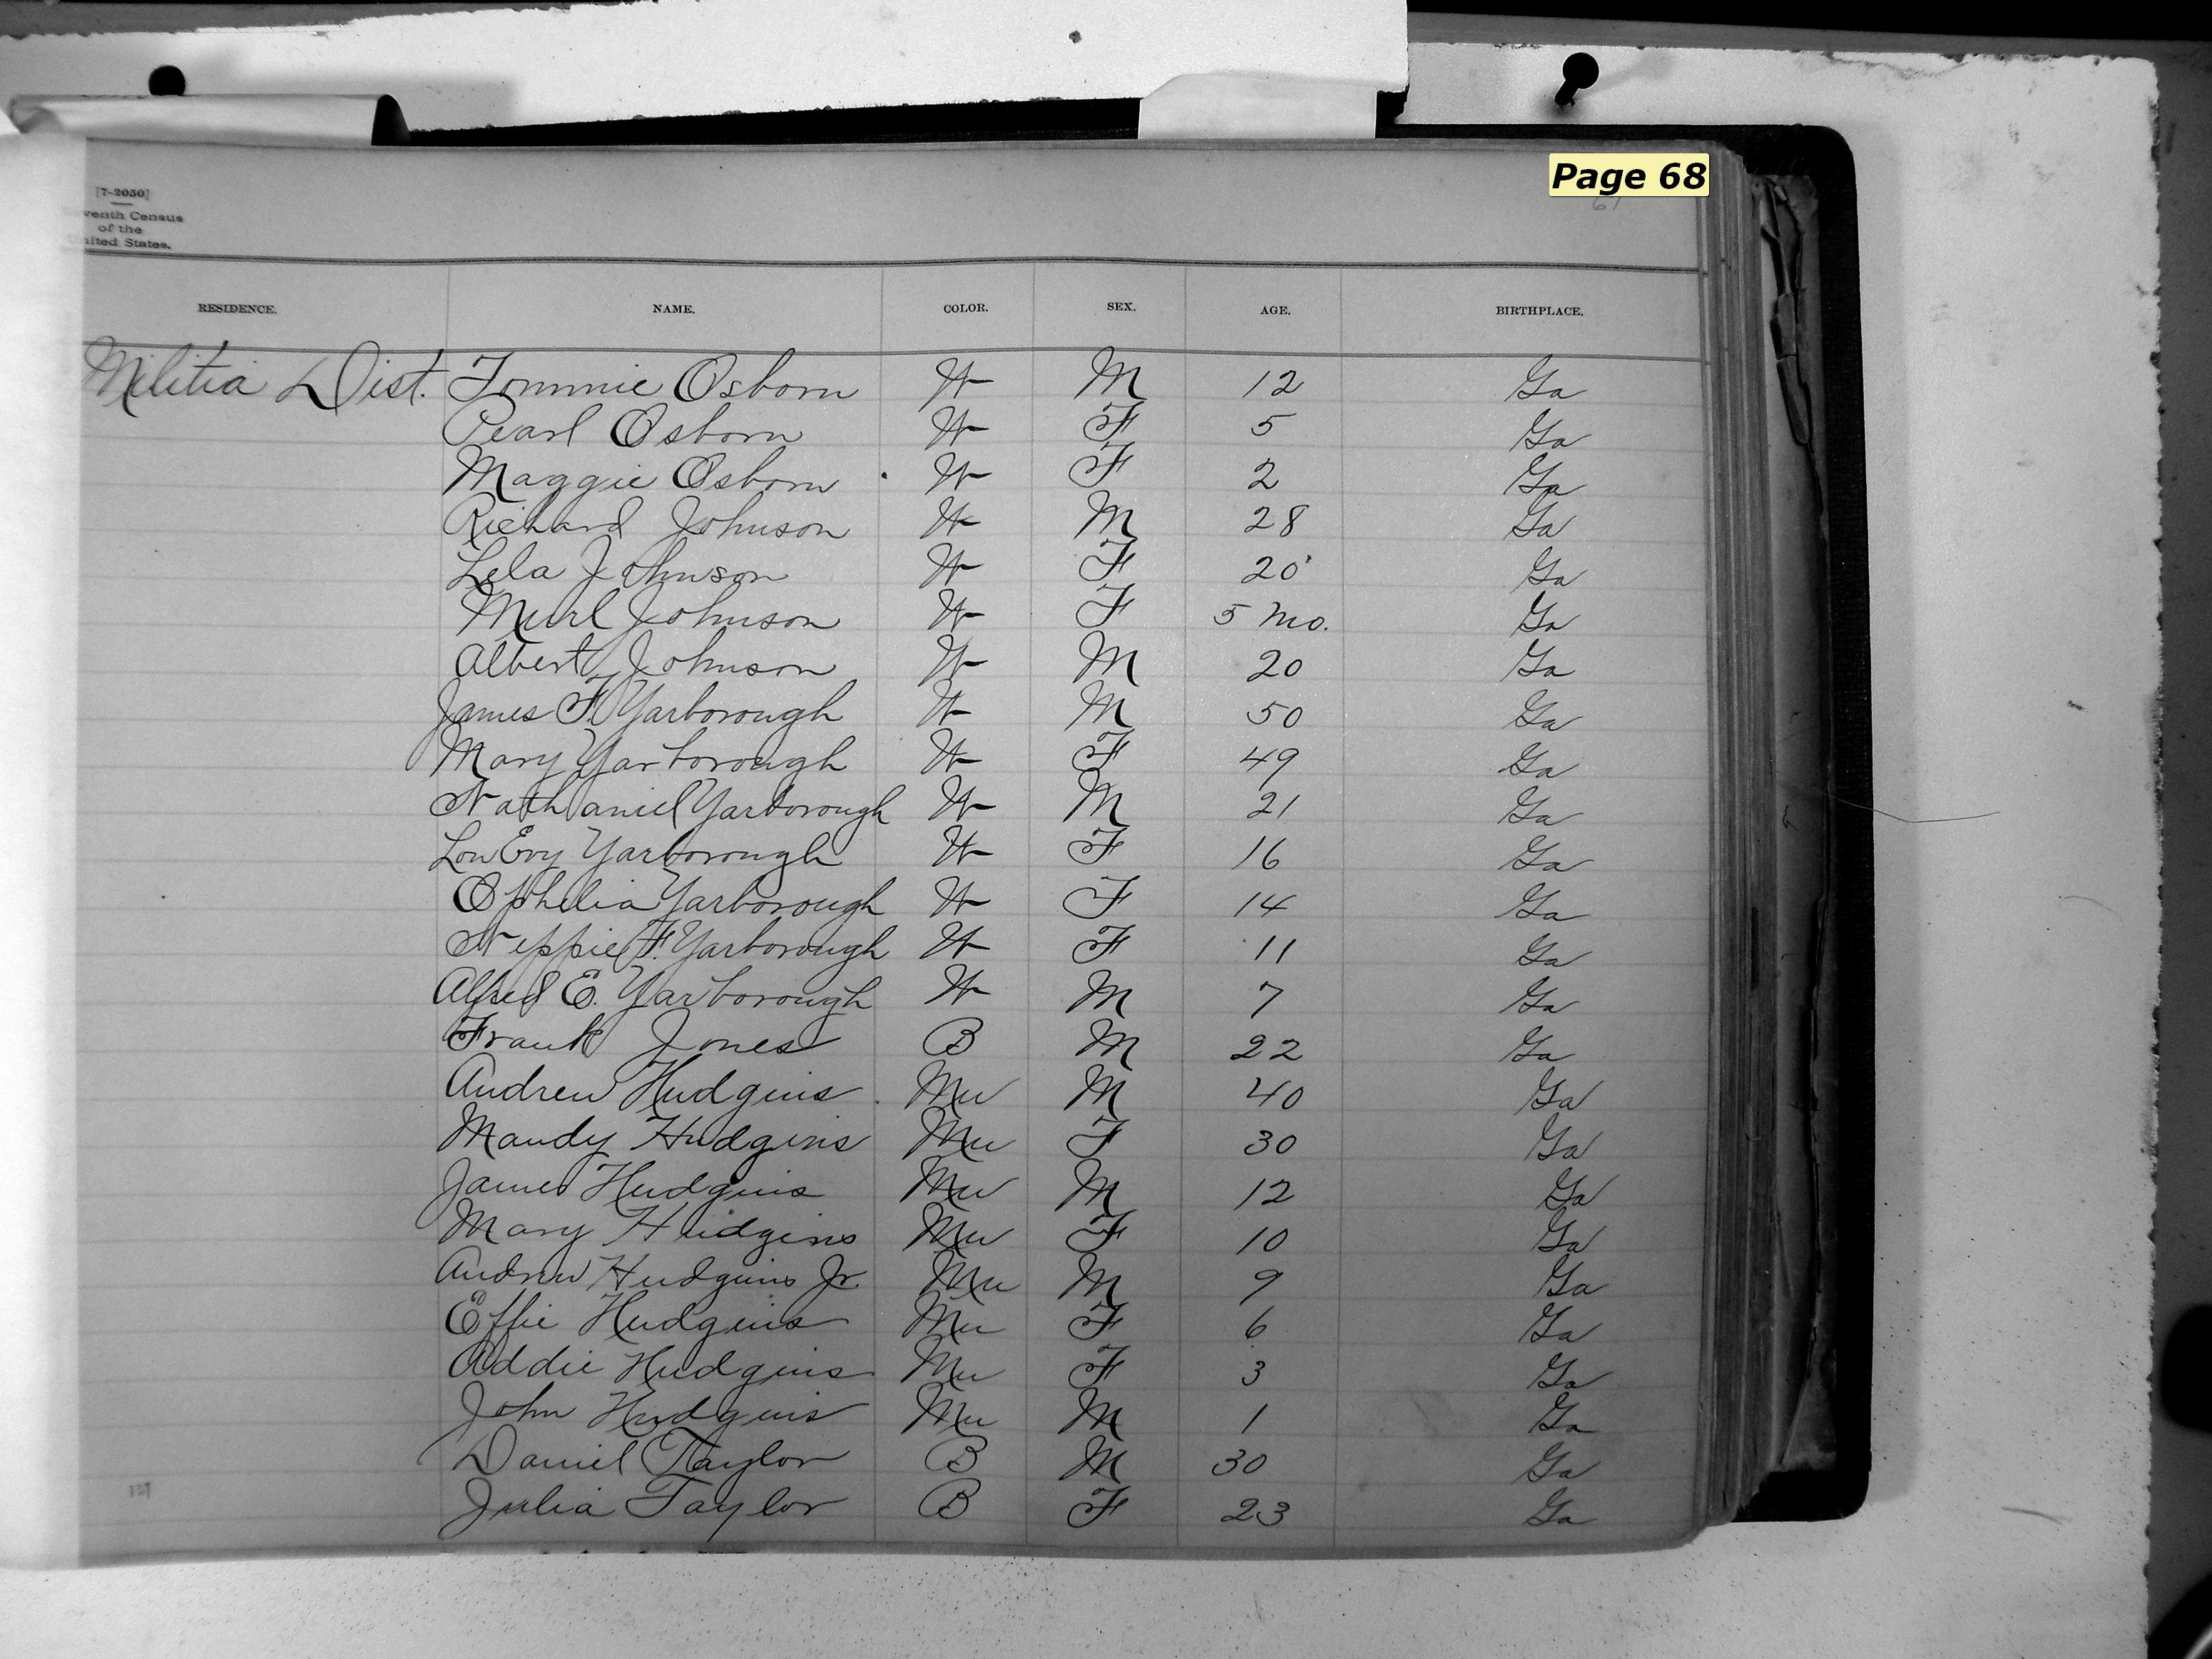 Page 68
[7-2050]
venth Census
of the
nited States.
RESIDENCE. NAME. COLOR. SEX. AGE. BIRTHPLACE.
Militia Dist. Tommie Osborn W M 12 Ga
Pearl Osborn W F 5 Ga
Maggie Osborn W F 2 Ga
Richard Johnson W M 28 Ga
Lela Johnson W F 20 Ga
Murl Johnson W F 5 Mo. Ga
Albert Johnson W M 20 Ga
James F. Yarborough W M 50 Ga
Mary Yarborough W F 49 Ga
Nathaniel Yarborough W M 21 Ga
Lou Evy Yarborough W F 16 Ga
Ophelia Yarborough W F 14 Ga
Neppie F. Yarborough W F 11 Ga
Alfred E. Yarborough W M 7 Ga
Frank Jones B M 22 Ga
Andrew Hudgins Mu M 40 Ga
Mandy Hudgins Mu F 30 Ga
James Hudgins Mu M 12 Ga
Mary Hudgins Mu F 10 Ga
Andrew Hudgins Jr. Mu M 9 Ga
Effie Hudgins Mu F 6 Ga
Addie Hudgins Mu F 3 Ga
John Hudgins Mu M 1 Ga
Daniel Taylor B M 30 Ga
Julia Taylor B F 23 Ga